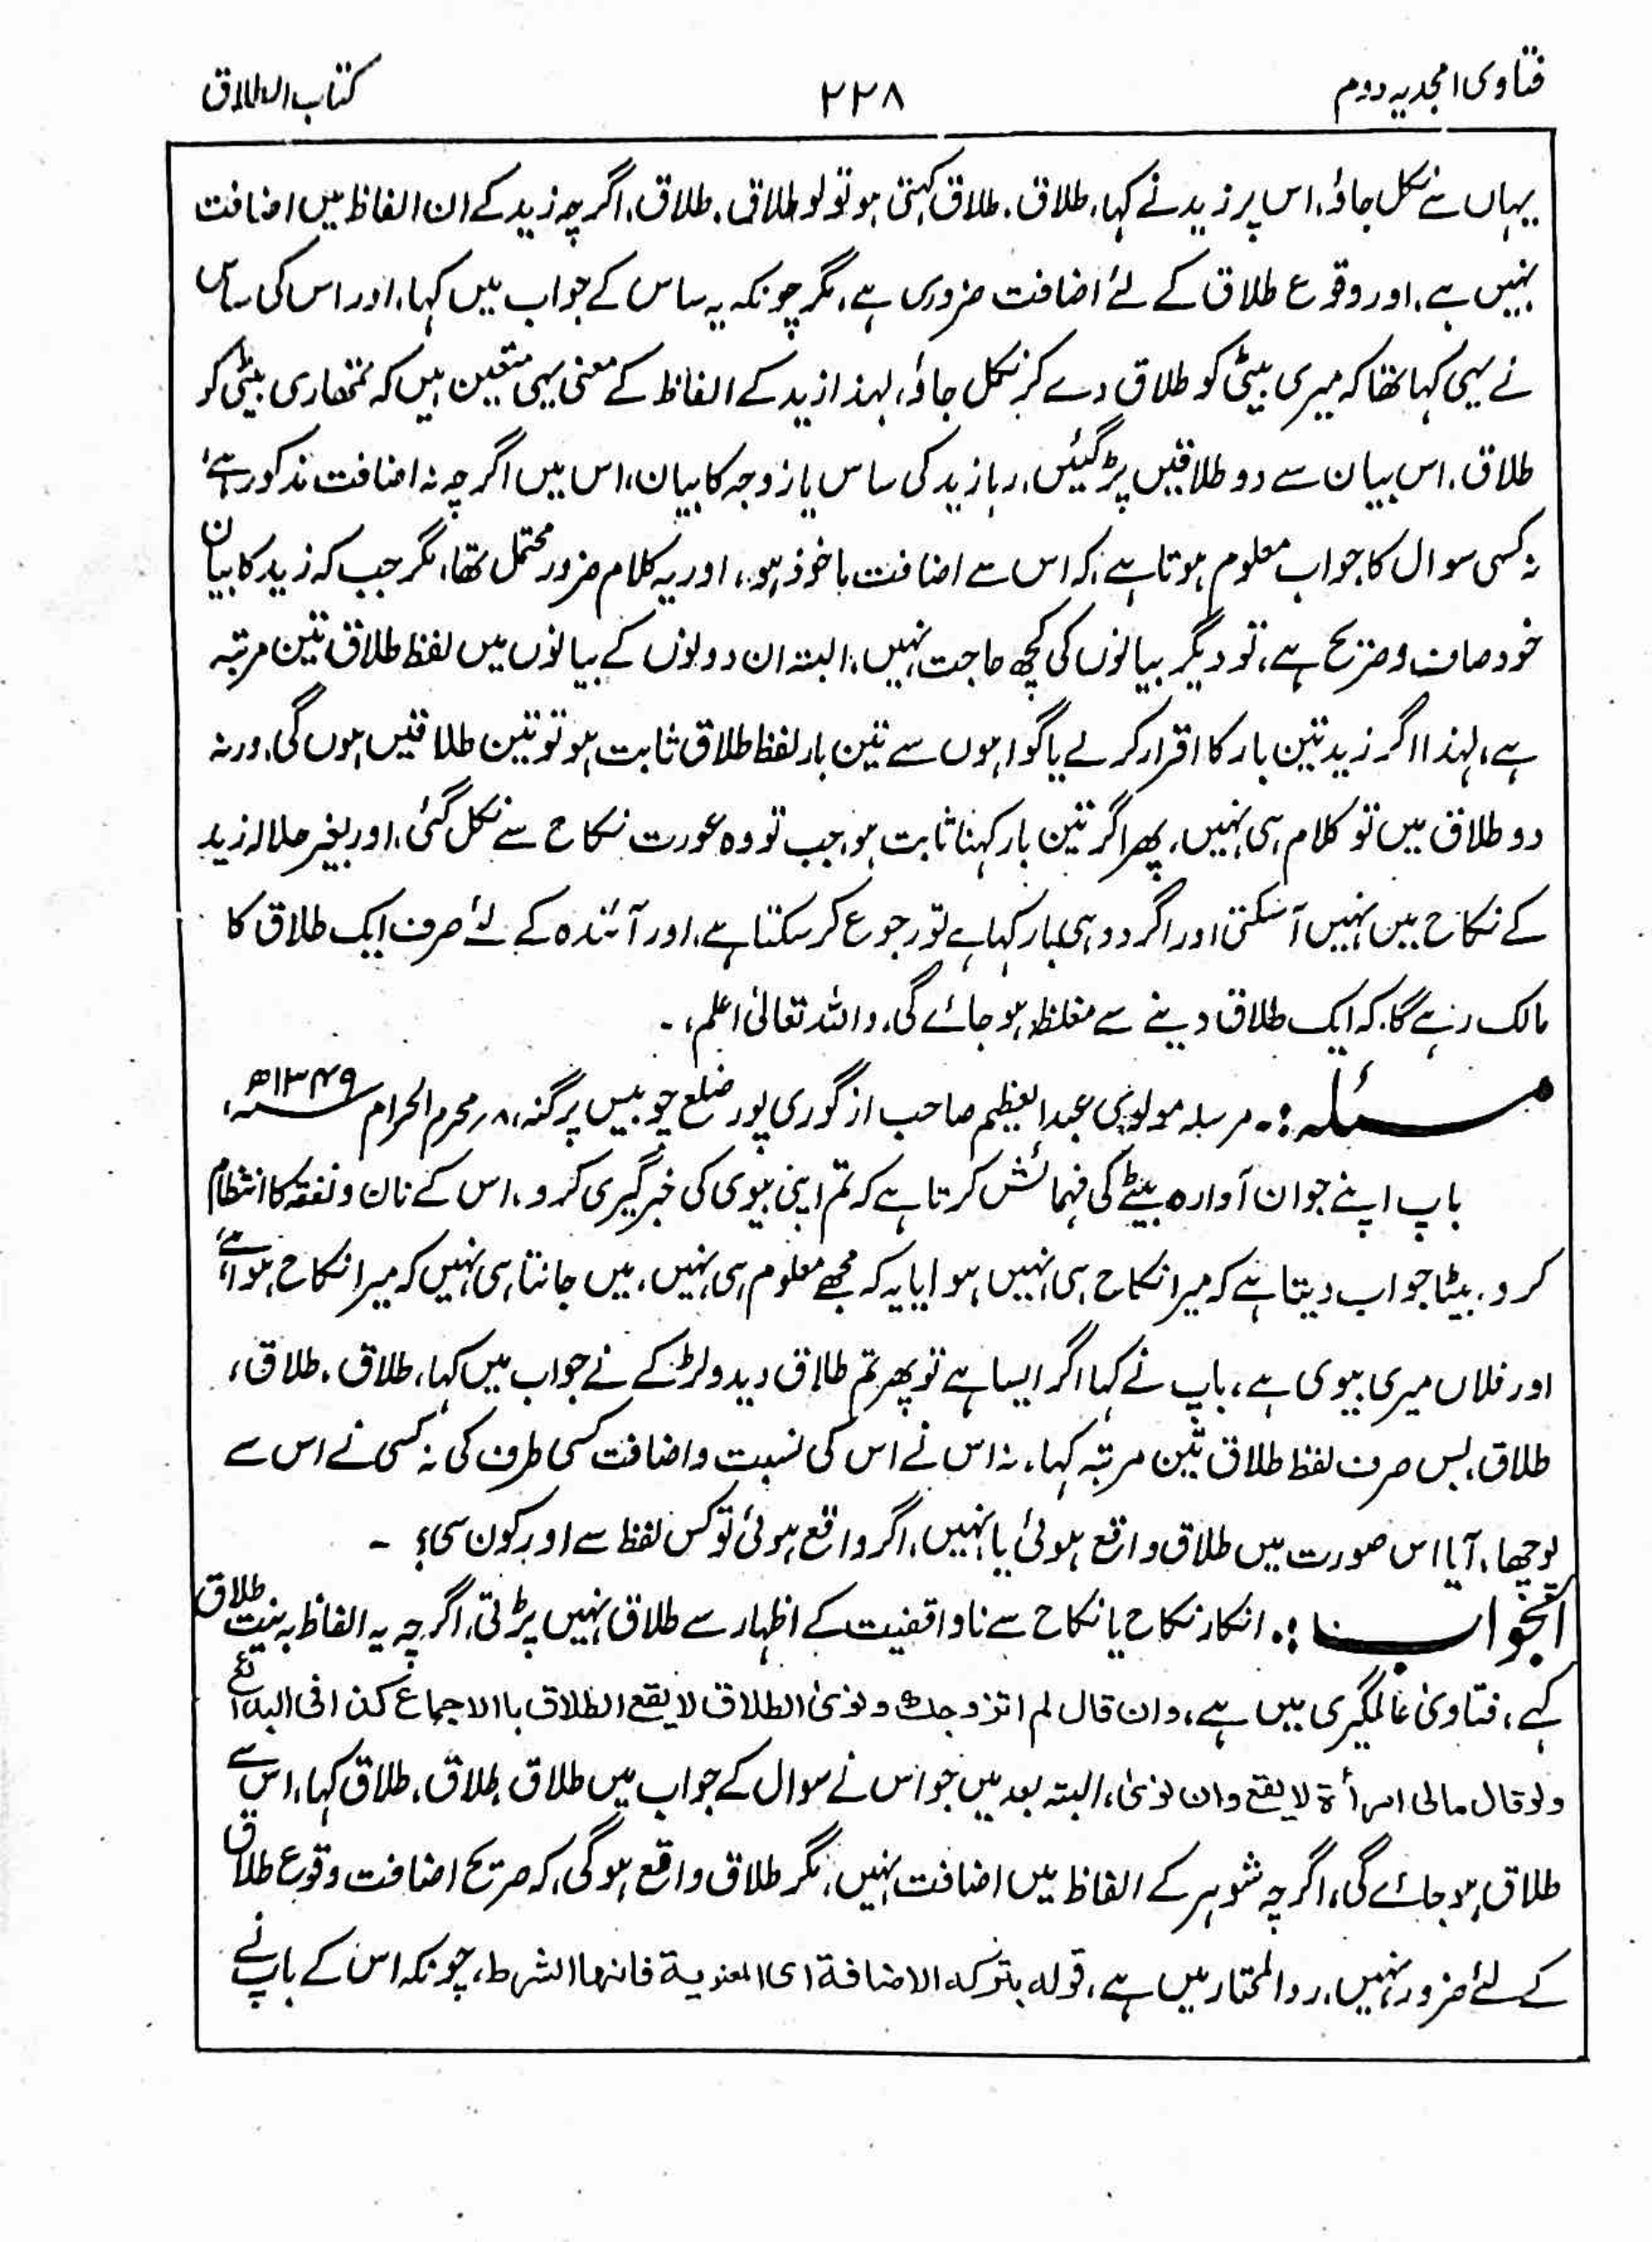 فتاوی امجدیہ دوم
۲۲۸
کتاب الطلاق
یہاں سے نکل جاؤ، اس پر زید نے کہا، طلاق، طلاق کہتی ہو تو لو طلاق، طلاق، اگرچہ زید کے ان الفاظ میں اضافت
نہیں ہے، اور وقوع طلاق کے لئے اضافت ضروری ہے، مگر چونکہ یہ ساس کے جواب میں کہا، اور اس کی ساس
نے یہی کہا تھا کہ میری بیٹی کو طلاق دے کر نکل جاؤ، لہذا زید کے الفاظ کے معنی یہی متعین ہیں کہ تمھاری بیٹی کو
طلاق، اس بیان سے دو طلاقیں پڑ گئیں، رہا زید کی ساس یا زوجہ کا بیان، اس میں اگرچہ نہ اضافت مذکور ہے،
نہ کسی سوال کا جواب معلوم ہوتا ہے، کہ اس سے اضافت ماخوذ ہو، اور یہ کلام ضرور محتمل تھا، مگر جب کہ زید کا بیان
خود صاف و صریح ہے، تو دیگر بیانوں کی کچھ حاجت نہیں، البتہ ان دونوں کے بیانوں میں لفظ طلاق تین مرتبہ
ہے، لہذا اگر زید تین بار کا اقرار کر لے یا گواہوں سے تین بار لفظ طلاق ثابت ہو تو تین طلاقیں ہوں گی، ورنہ
دو طلاق میں تو کلام ہی نہیں، پھر اگر تین بار کہنا ثابت ہو، جب تو وہ عورت نکاح سے نکل گئی، اور بغیر حلالہ زید
کے نکاح میں نہیں آسکتی اور اگر دو ہی بار کہا ہے تو رجوع کر سکتا ہے، اور آئندہ کے لئے صرف ایک طلاق کا
مالک رہے گا، کہ ایک طلاق دینے سے مغلظہ ہو جائے گی، واللہ تعالیٰ اعلم، ۔
مسئلہ :۔ مرسلہ مولوی عبدالعظیم صاحب از گوری پور ضلع چوبیس پرگنہ، ۸ محرم الحرام ۱۳۴۹ھ،
باپ اپنے جوان آوارہ بیٹے کی فہمائش کرتا ہے کہ تم اپنی بیوی کی خبرگیری کرو، اس کے نان و نفقہ کا انتظام
کرو، بیٹا جواب دیتا ہے کہ میرا نکاح ہی نہیں ہوا یا یہ کہ مجھے معلوم ہی نہیں، میں جانتا ہی نہیں کہ میرا نکاح ہوا ہے،
اور فلاں میری بیوی ہے، باپ نے کہا اگر ایسا ہے تو پھر تم طلاق دیدو لڑکے نے جواب میں کہا، طلاق، طلاق،
طلاق، بس صرف لفظ طلاق تین مرتبہ کہا، نہ اس نے اس کی نسبت و اضافت کسی طرف کی نہ کسی نے اس سے
پوچھا، آیا اس صورت میں طلاق واقع ہوئی یا نہیں، اگر واقع ہوئی تو کس لفظ سے اور کون سی؟ ۔
الجواب :۔ انکار نکاح یا نکاح سے ناواقفیت کے اظہار سے طلاق نہیں پڑتی، اگرچہ یہ الفاظ بہ نیت طلاق
کہے، فتاویٰ عالمگیری میں ہے، وان قال لم اتزوجك ونوی الطلاق لا یقع الطلاق باالاجماع کذا فی البدائع
ولو قال مالی امرأة لا یقع وان نوی، البتہ بعد میں جو اس نے سوال کے جواب میں طلاق، طلاق، طلاق کہا، اس سے
طلاق ہو جائے گی، اگرچہ شوہر کے الفاظ میں اضافت نہیں، مگر طلاق واقع ہوگی، کہ صریح اضافت وقوع طلاق
کے لئے ضرور نہیں، ردالمحتار میں ہے، قوله بتركه الاضافة ای المعنویة فانھا الشرط، چونکہ اس کے باپ نے